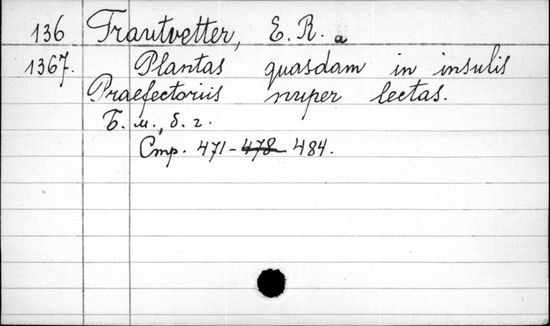 136 Trautvetter, E. R. a
1367. Plantas quasdam in insulis
Praefectoriis nuper lectas.
Б. и., б. г.
Стр. 471-478 484.